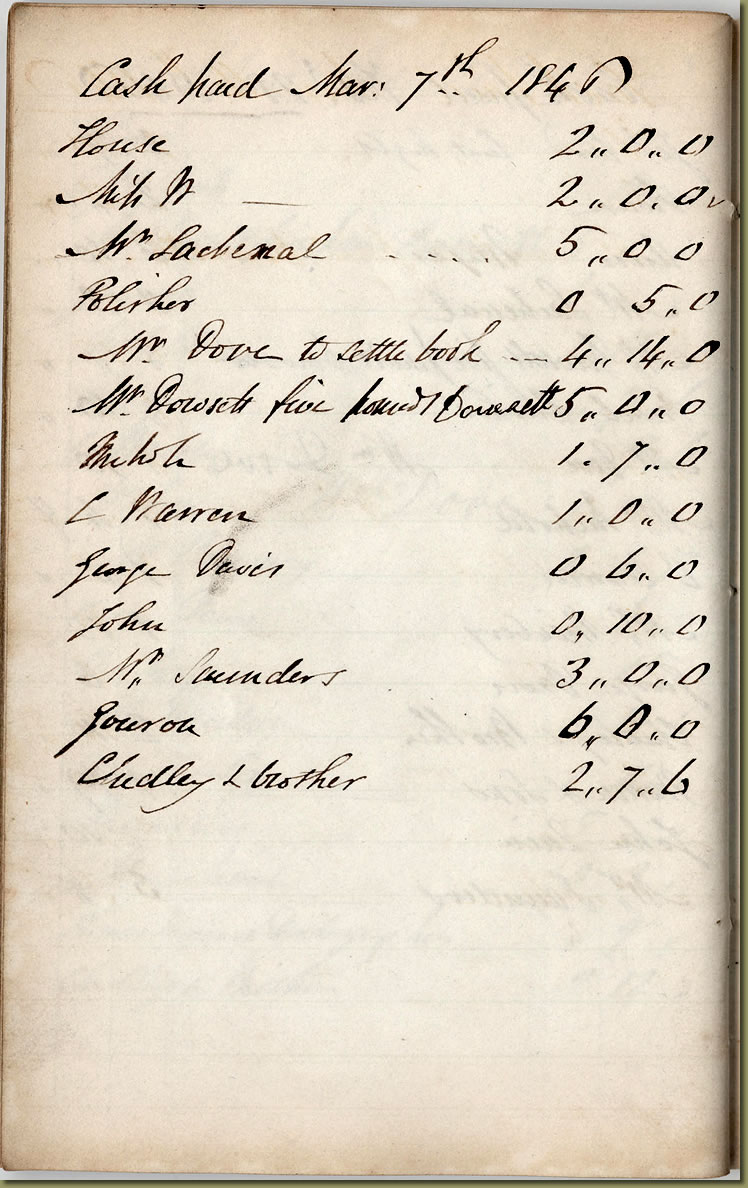 Cash paid Mar: 7th 1846
House 2,, 0,, 0
W 2,, 0, 0
Mr. Lachenal - - - - 5,, 0 0
Polisher 0 5,, 0
Mr Dove to settle book — 4,, 14,, 0
Mr. Dowsett five pounds Dowsett 5,, 0,, 0
1. 7,, 0
C Warren 1,, 0,, 0
George Davis 0 6,, 0
John 0,, 10,, 0
Mr. Saunders 3,, 0,, 0
6,, 0,, 0
Chidley & brother 2,, 7,, 6